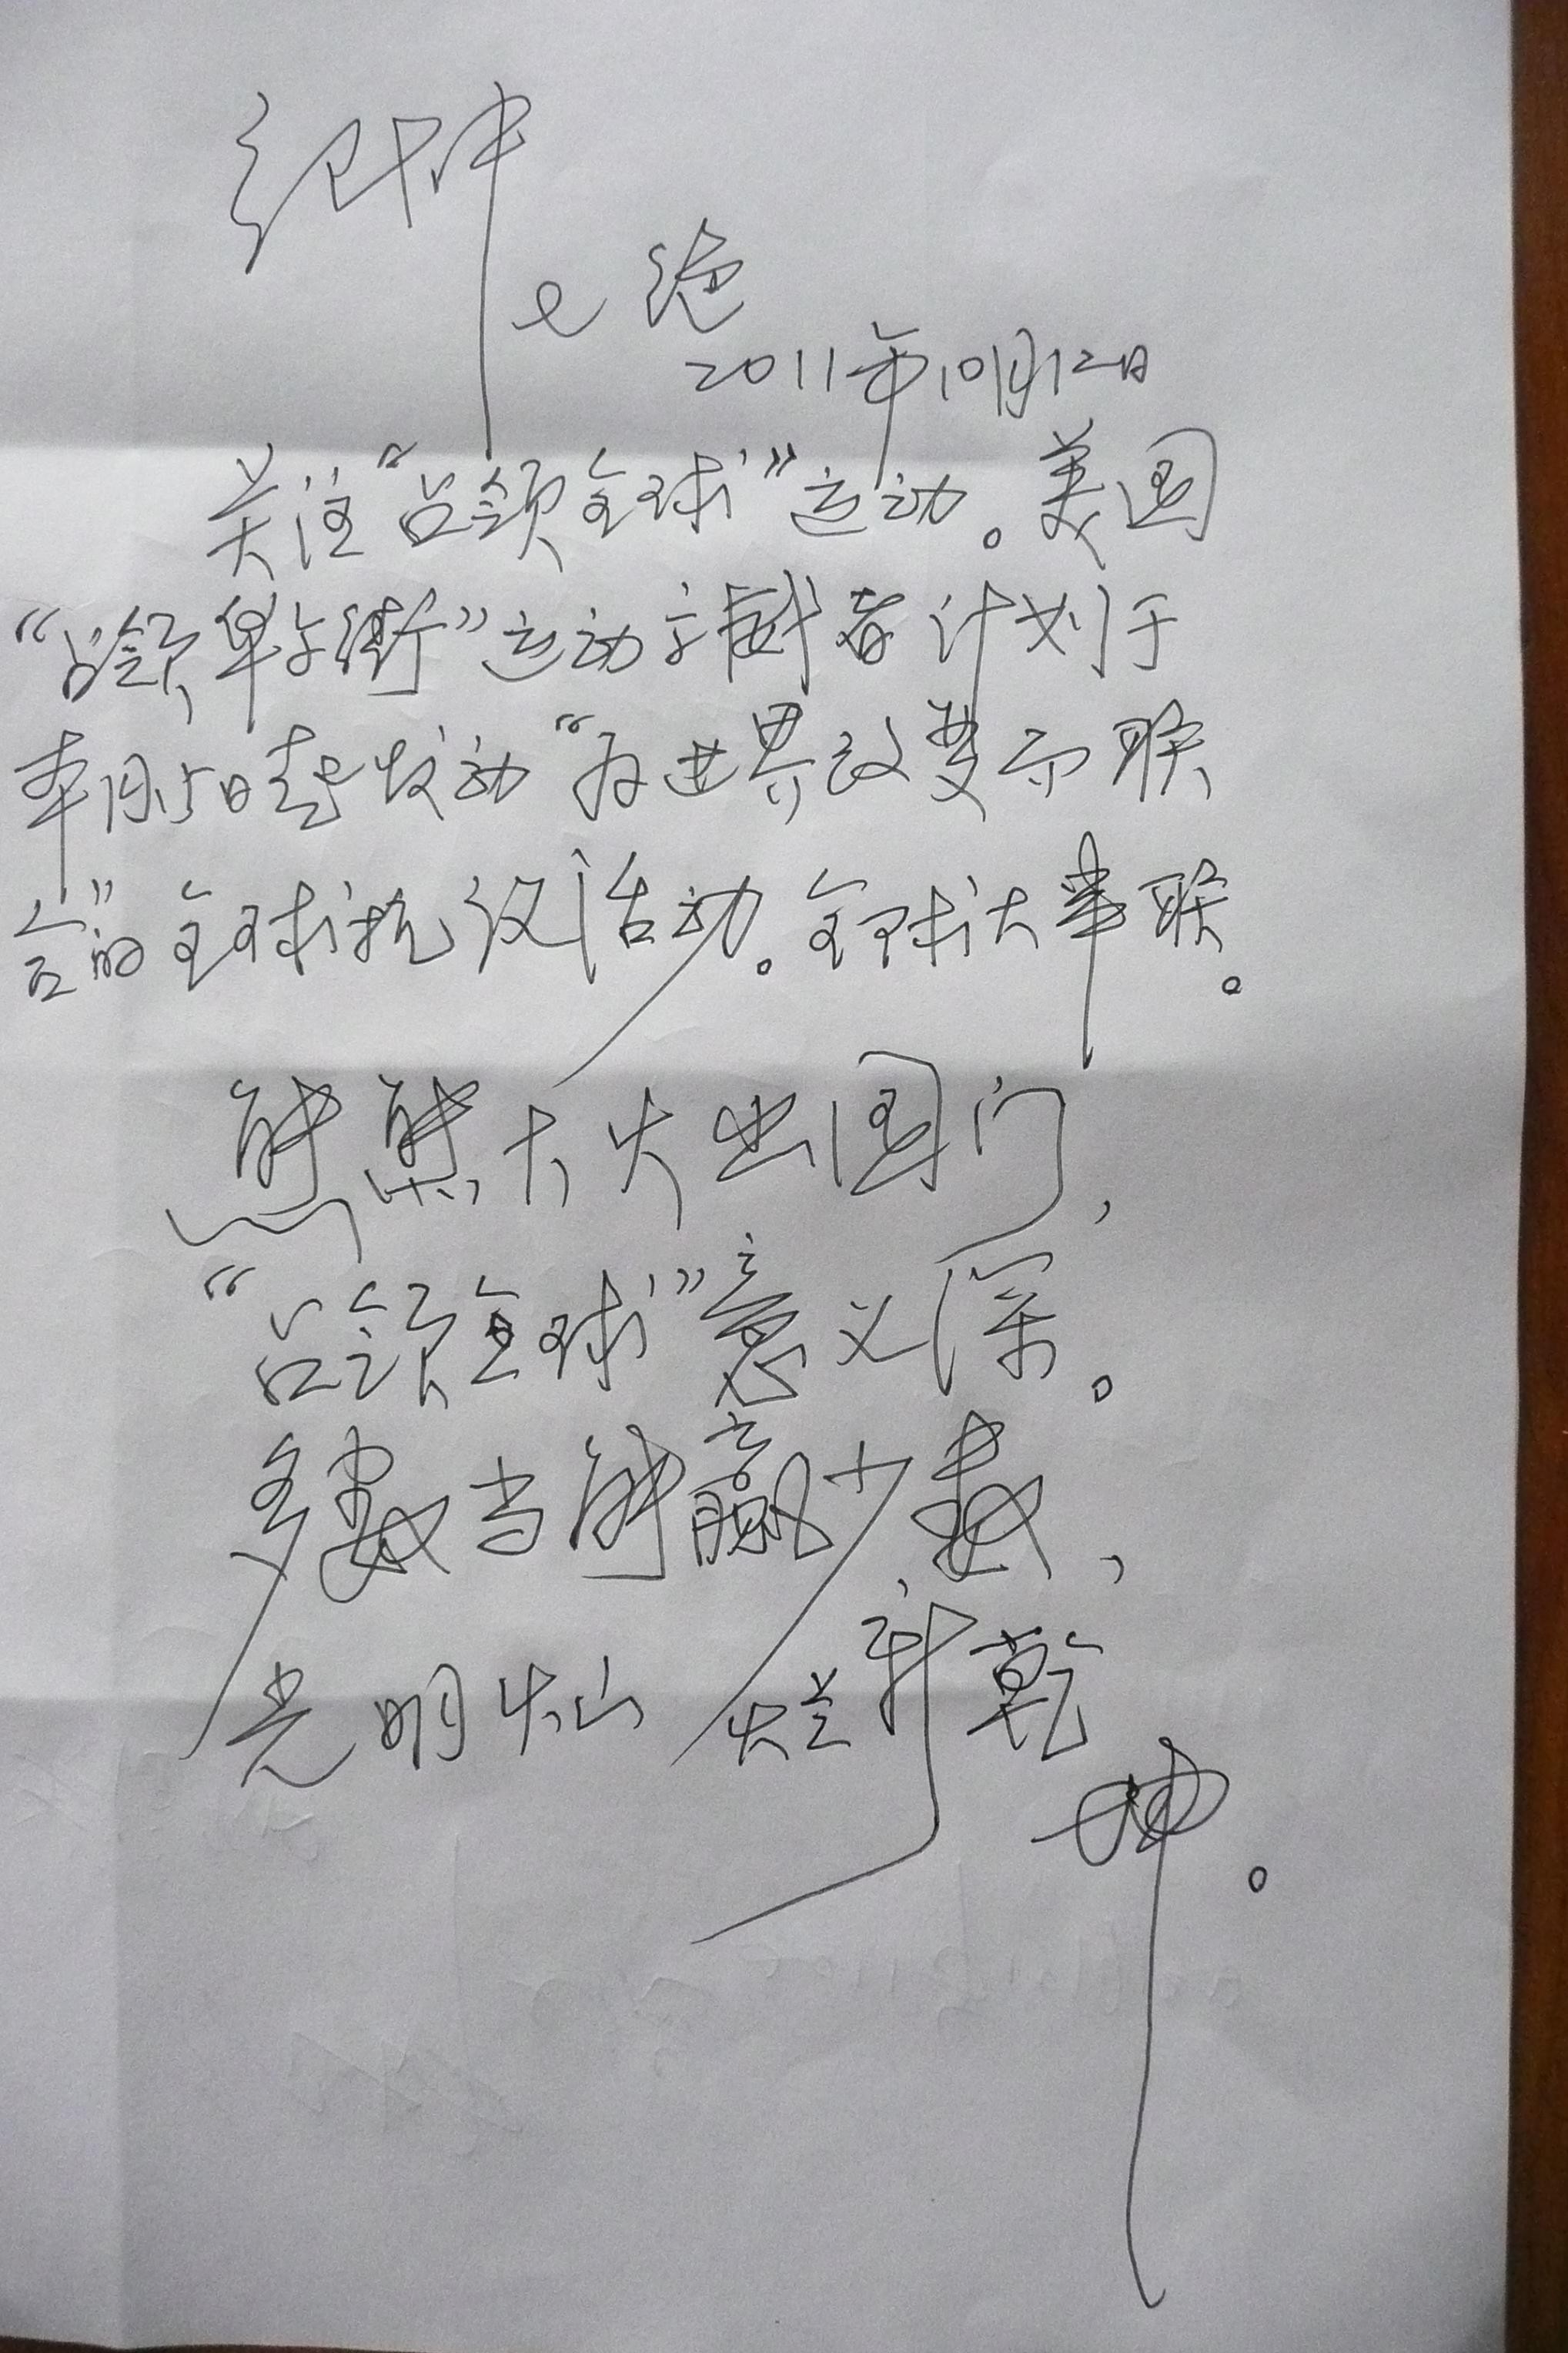 七绝
2011年10月12日
关注“占领全球”运动。美国
“占领华尔街”运动示威者计划于
本月15日起发动“为世界改变而联
合”的全球抗议活动。全球大串联。
熊熊大火出国门,
“占领全球”意义深。
多数当能赢少数,
光明灿烂新乾
坤。